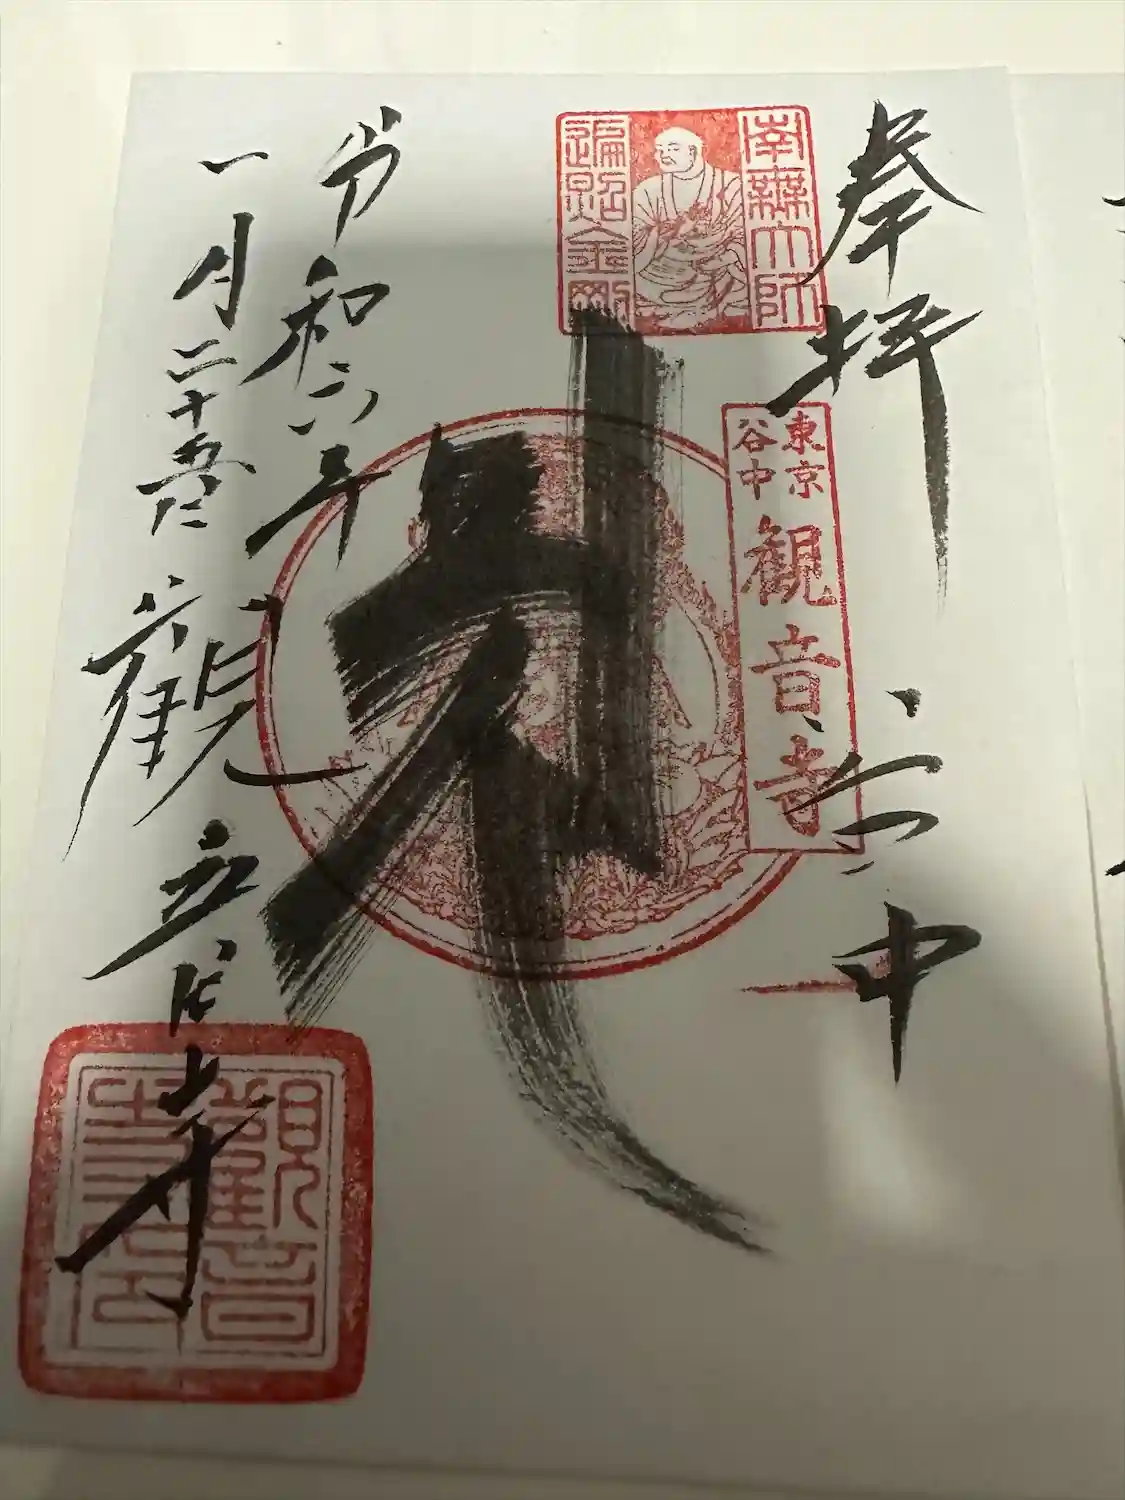 奉拝
谷中
南無大師
遍照金剛
東京
谷中
観音寺
令和六年
一月二十五日
観音寺
觀音
寺印